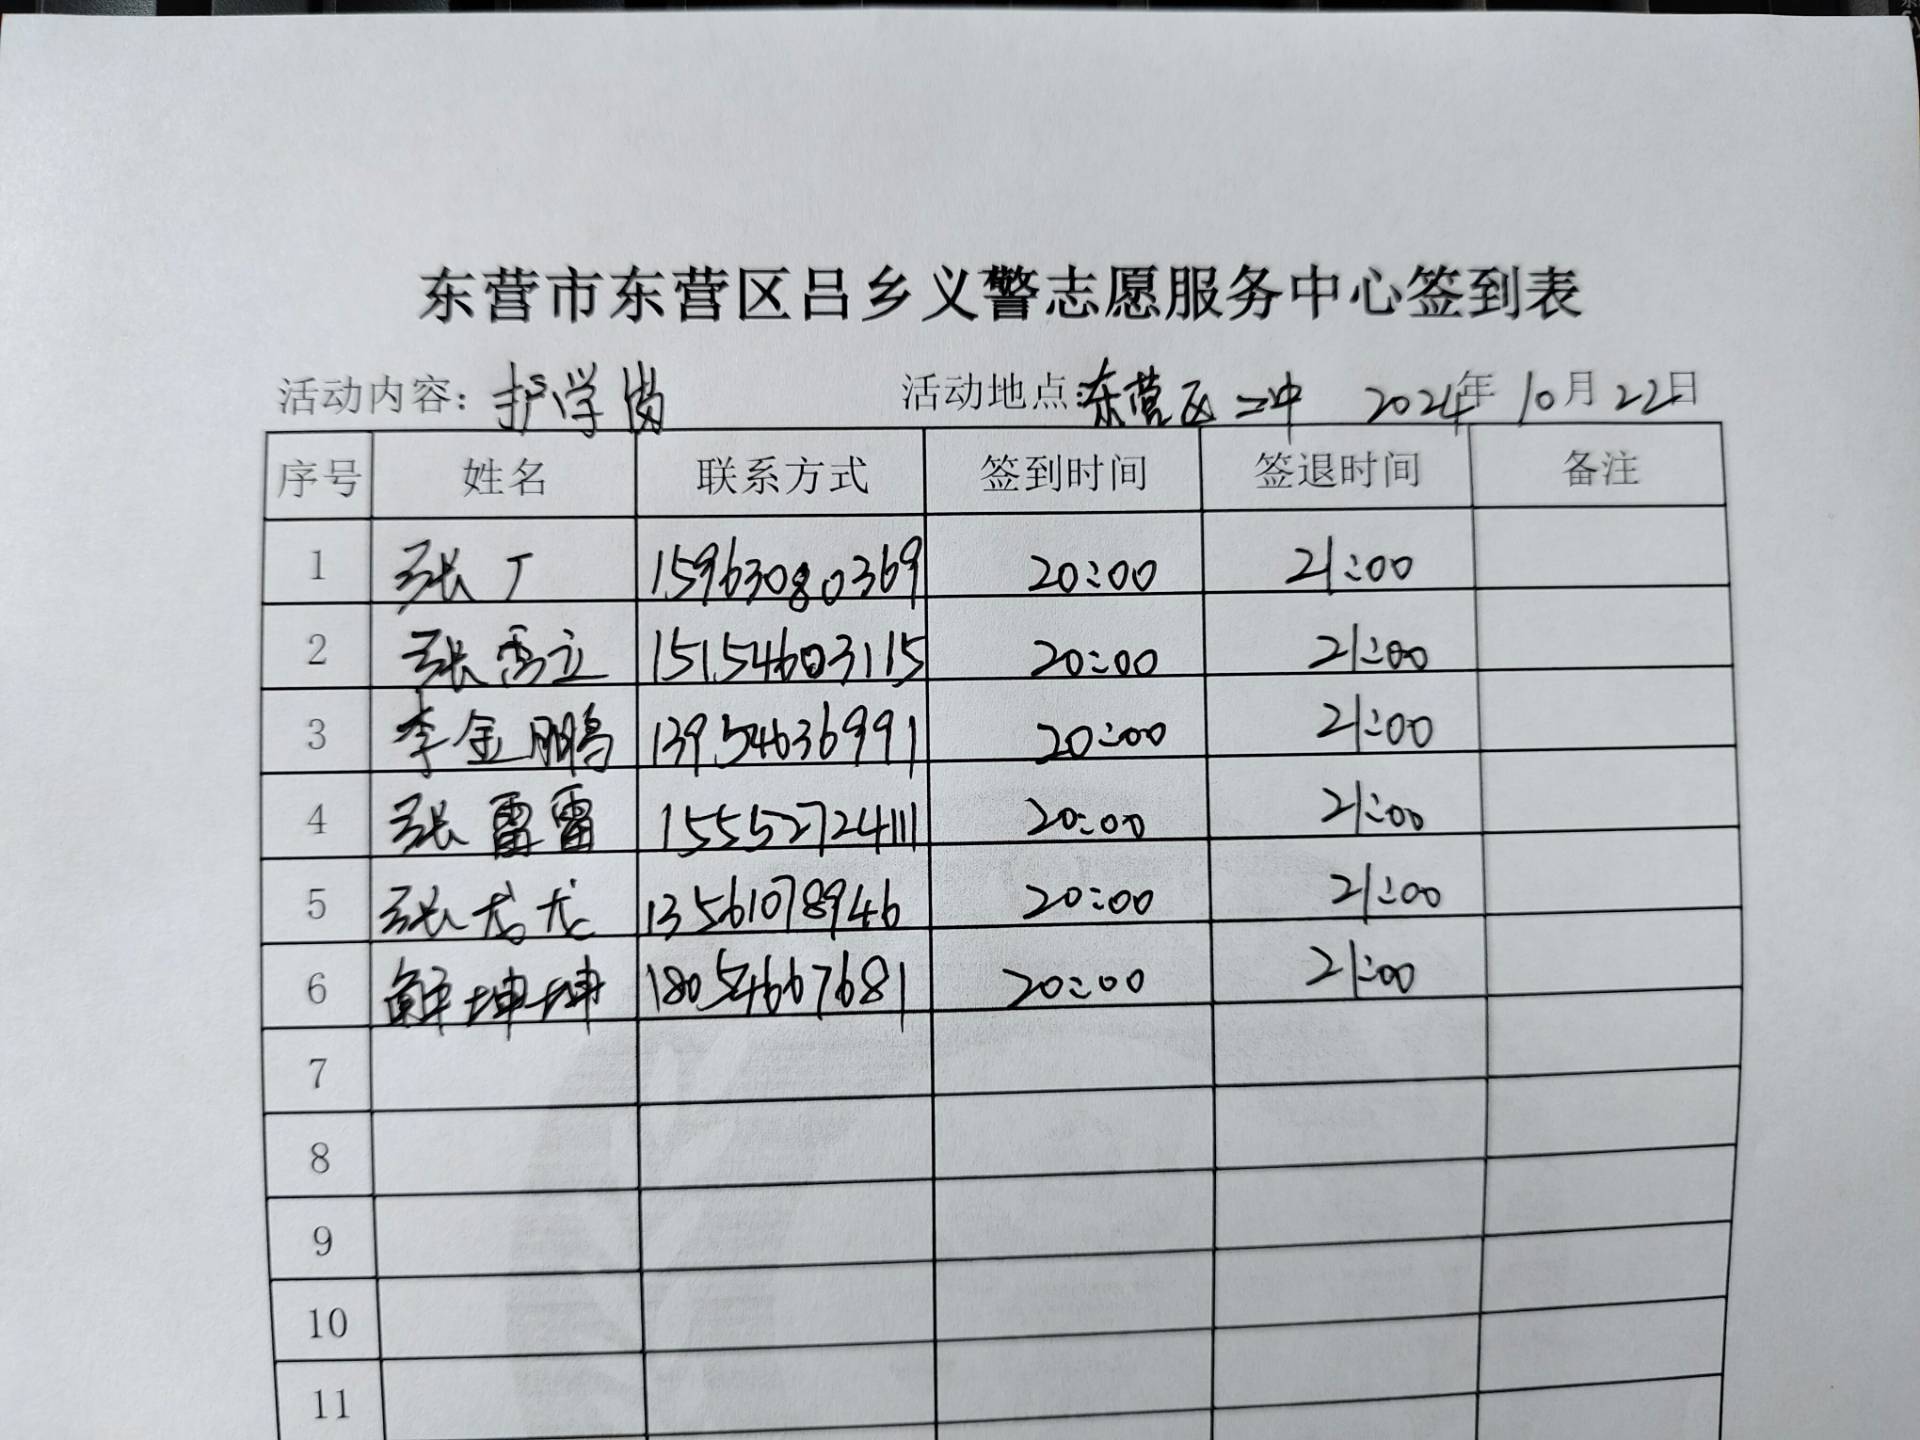 东营市东营区吕乡义警志愿服务中心签到表
活动内容：护学岗 活动地点：东营区二中 2024年10月22日
序号 姓名 联系方式 签到时间 签退时间 备注
1 张丁 15963080369 20:00 21:00
2 张雪立 15154603115 20:00 21:00
3 李金鹏 13954636991 20:00 21:00
4 张雷雷 15552724111 20:00 21:00
5 张 13561078946 20:00 21:00
6 坤坤 18054667681 20:00 21:00
7
8
9
10
11